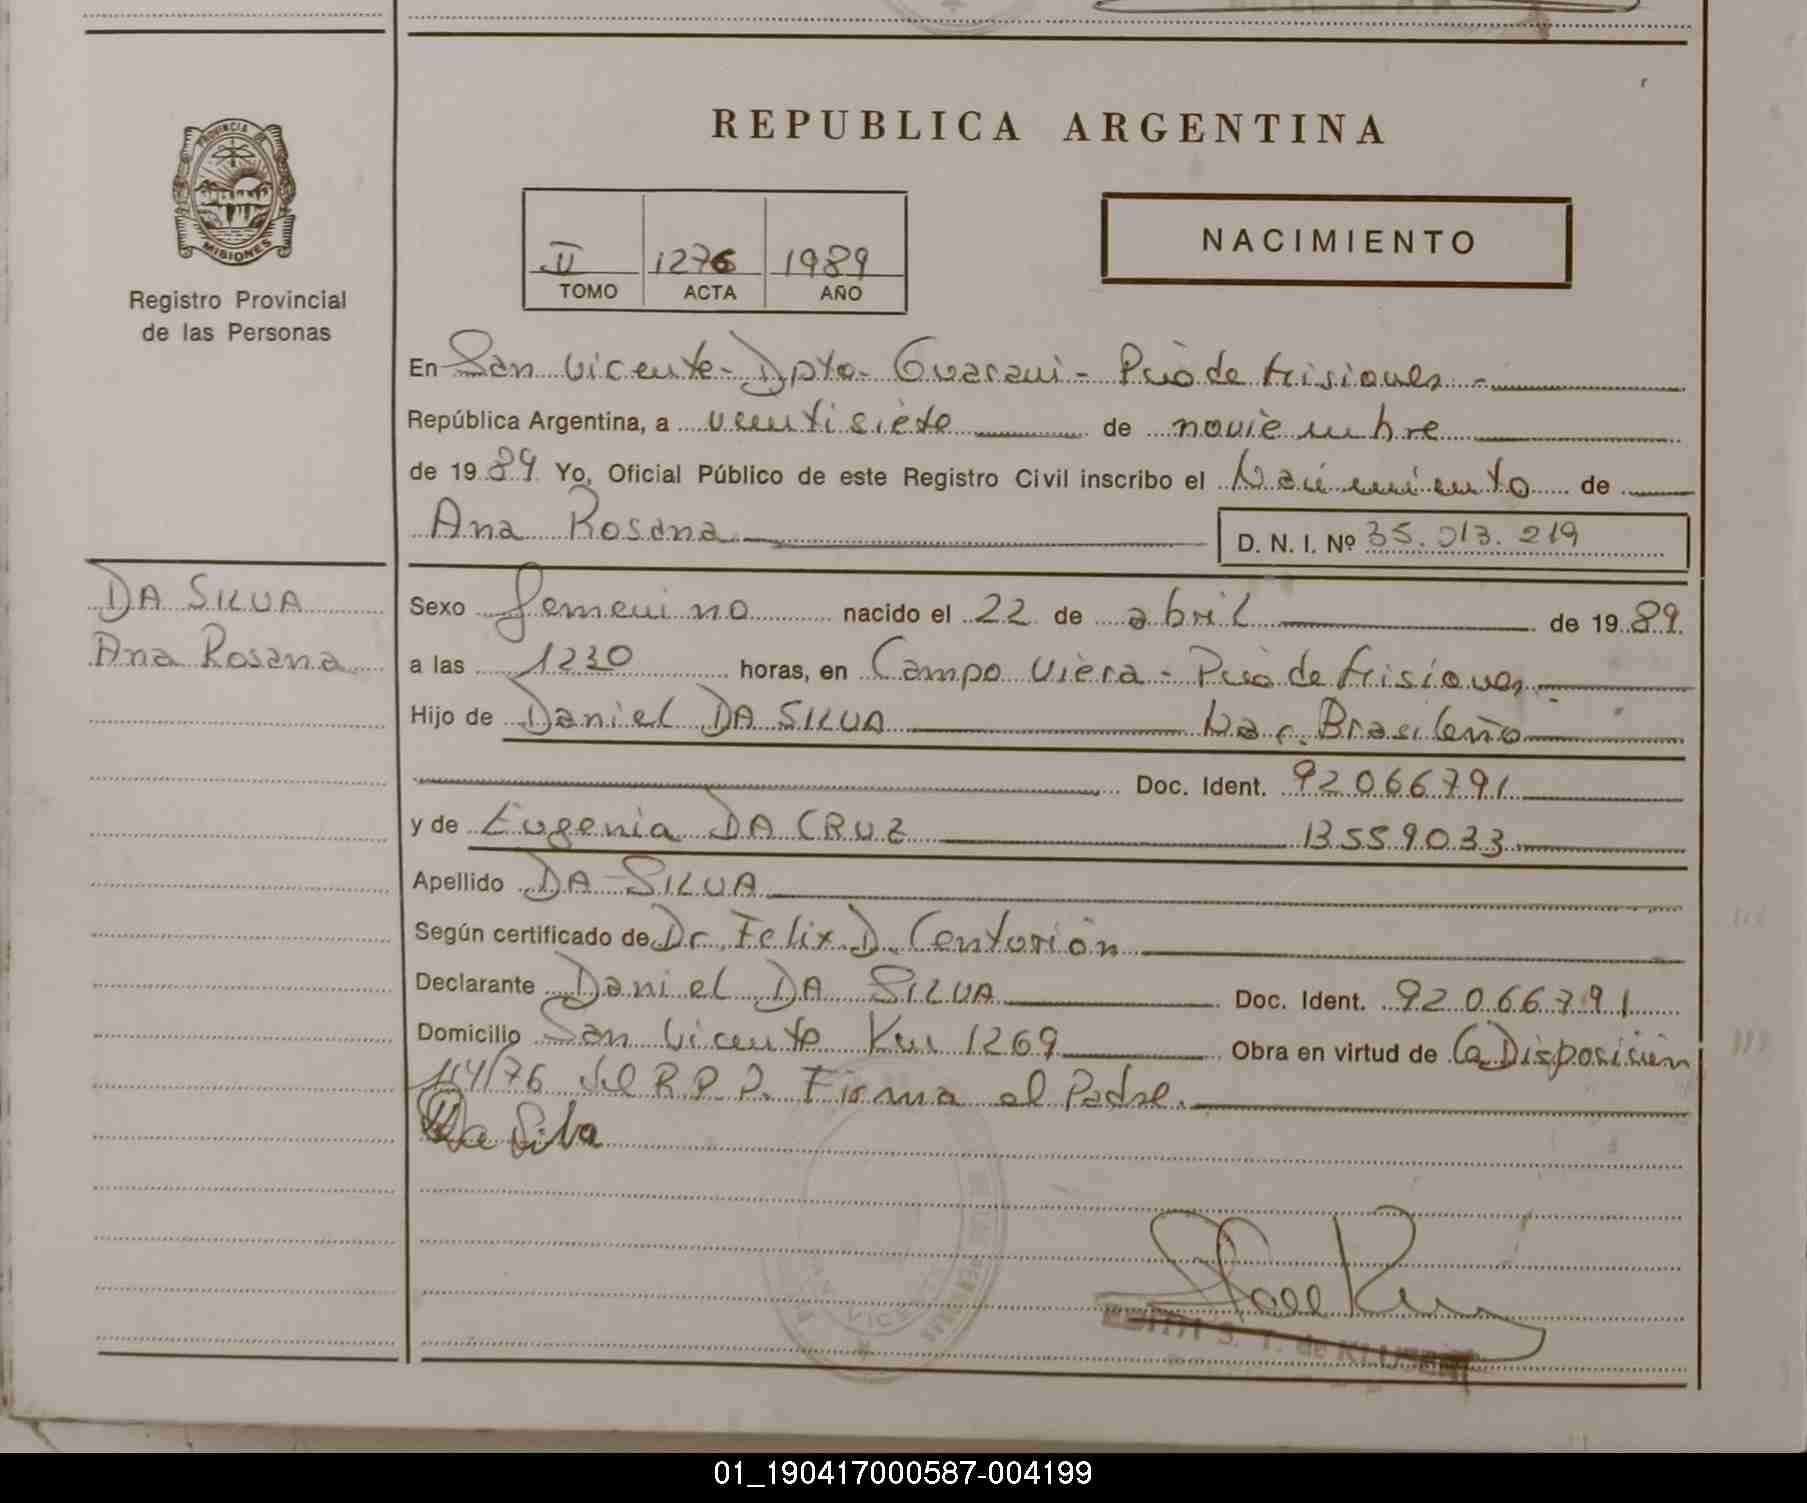 REPUBLICA ARGENTINA
PROVINCIA DE
MISIONES
Registro Provincial
de las Personas
II 1276 1989
TOMO ACTA AÑO
NACIMIENTO
En San Vicente - Dpto - Guarani - Pciò de Misiones -
República Argentina, a veentisiete de noviembre
de 1989 Yo, Oficial Público de este Registro Civil inscribo el Nacimiento de
Ana Rosana D. N. I. Nº 35.013.219
DA SILVA
Ana Rosana
Sexo femenino nacido el 22 de abril de 1989
a las 1230 horas, en Campo Viera - Pciò de Misiones
Hijo de Daniel DA SILVA Nac. Brasileño
Doc. Ident. 92066791
y de Eugenia DA CRUZ 13559033
Apellido DA SILVA
Según certificado de Dr. Felix D. Centorión
Declarante Daniel DA SILVA Doc. Ident. 92066791
Domicilio San Vicente Km 1269 Obra en virtud de la Disposición
114/76 del R.P.P. Firma el Padre.
Da Silva
VICENTE
S. T. de
01_190417000587-004199